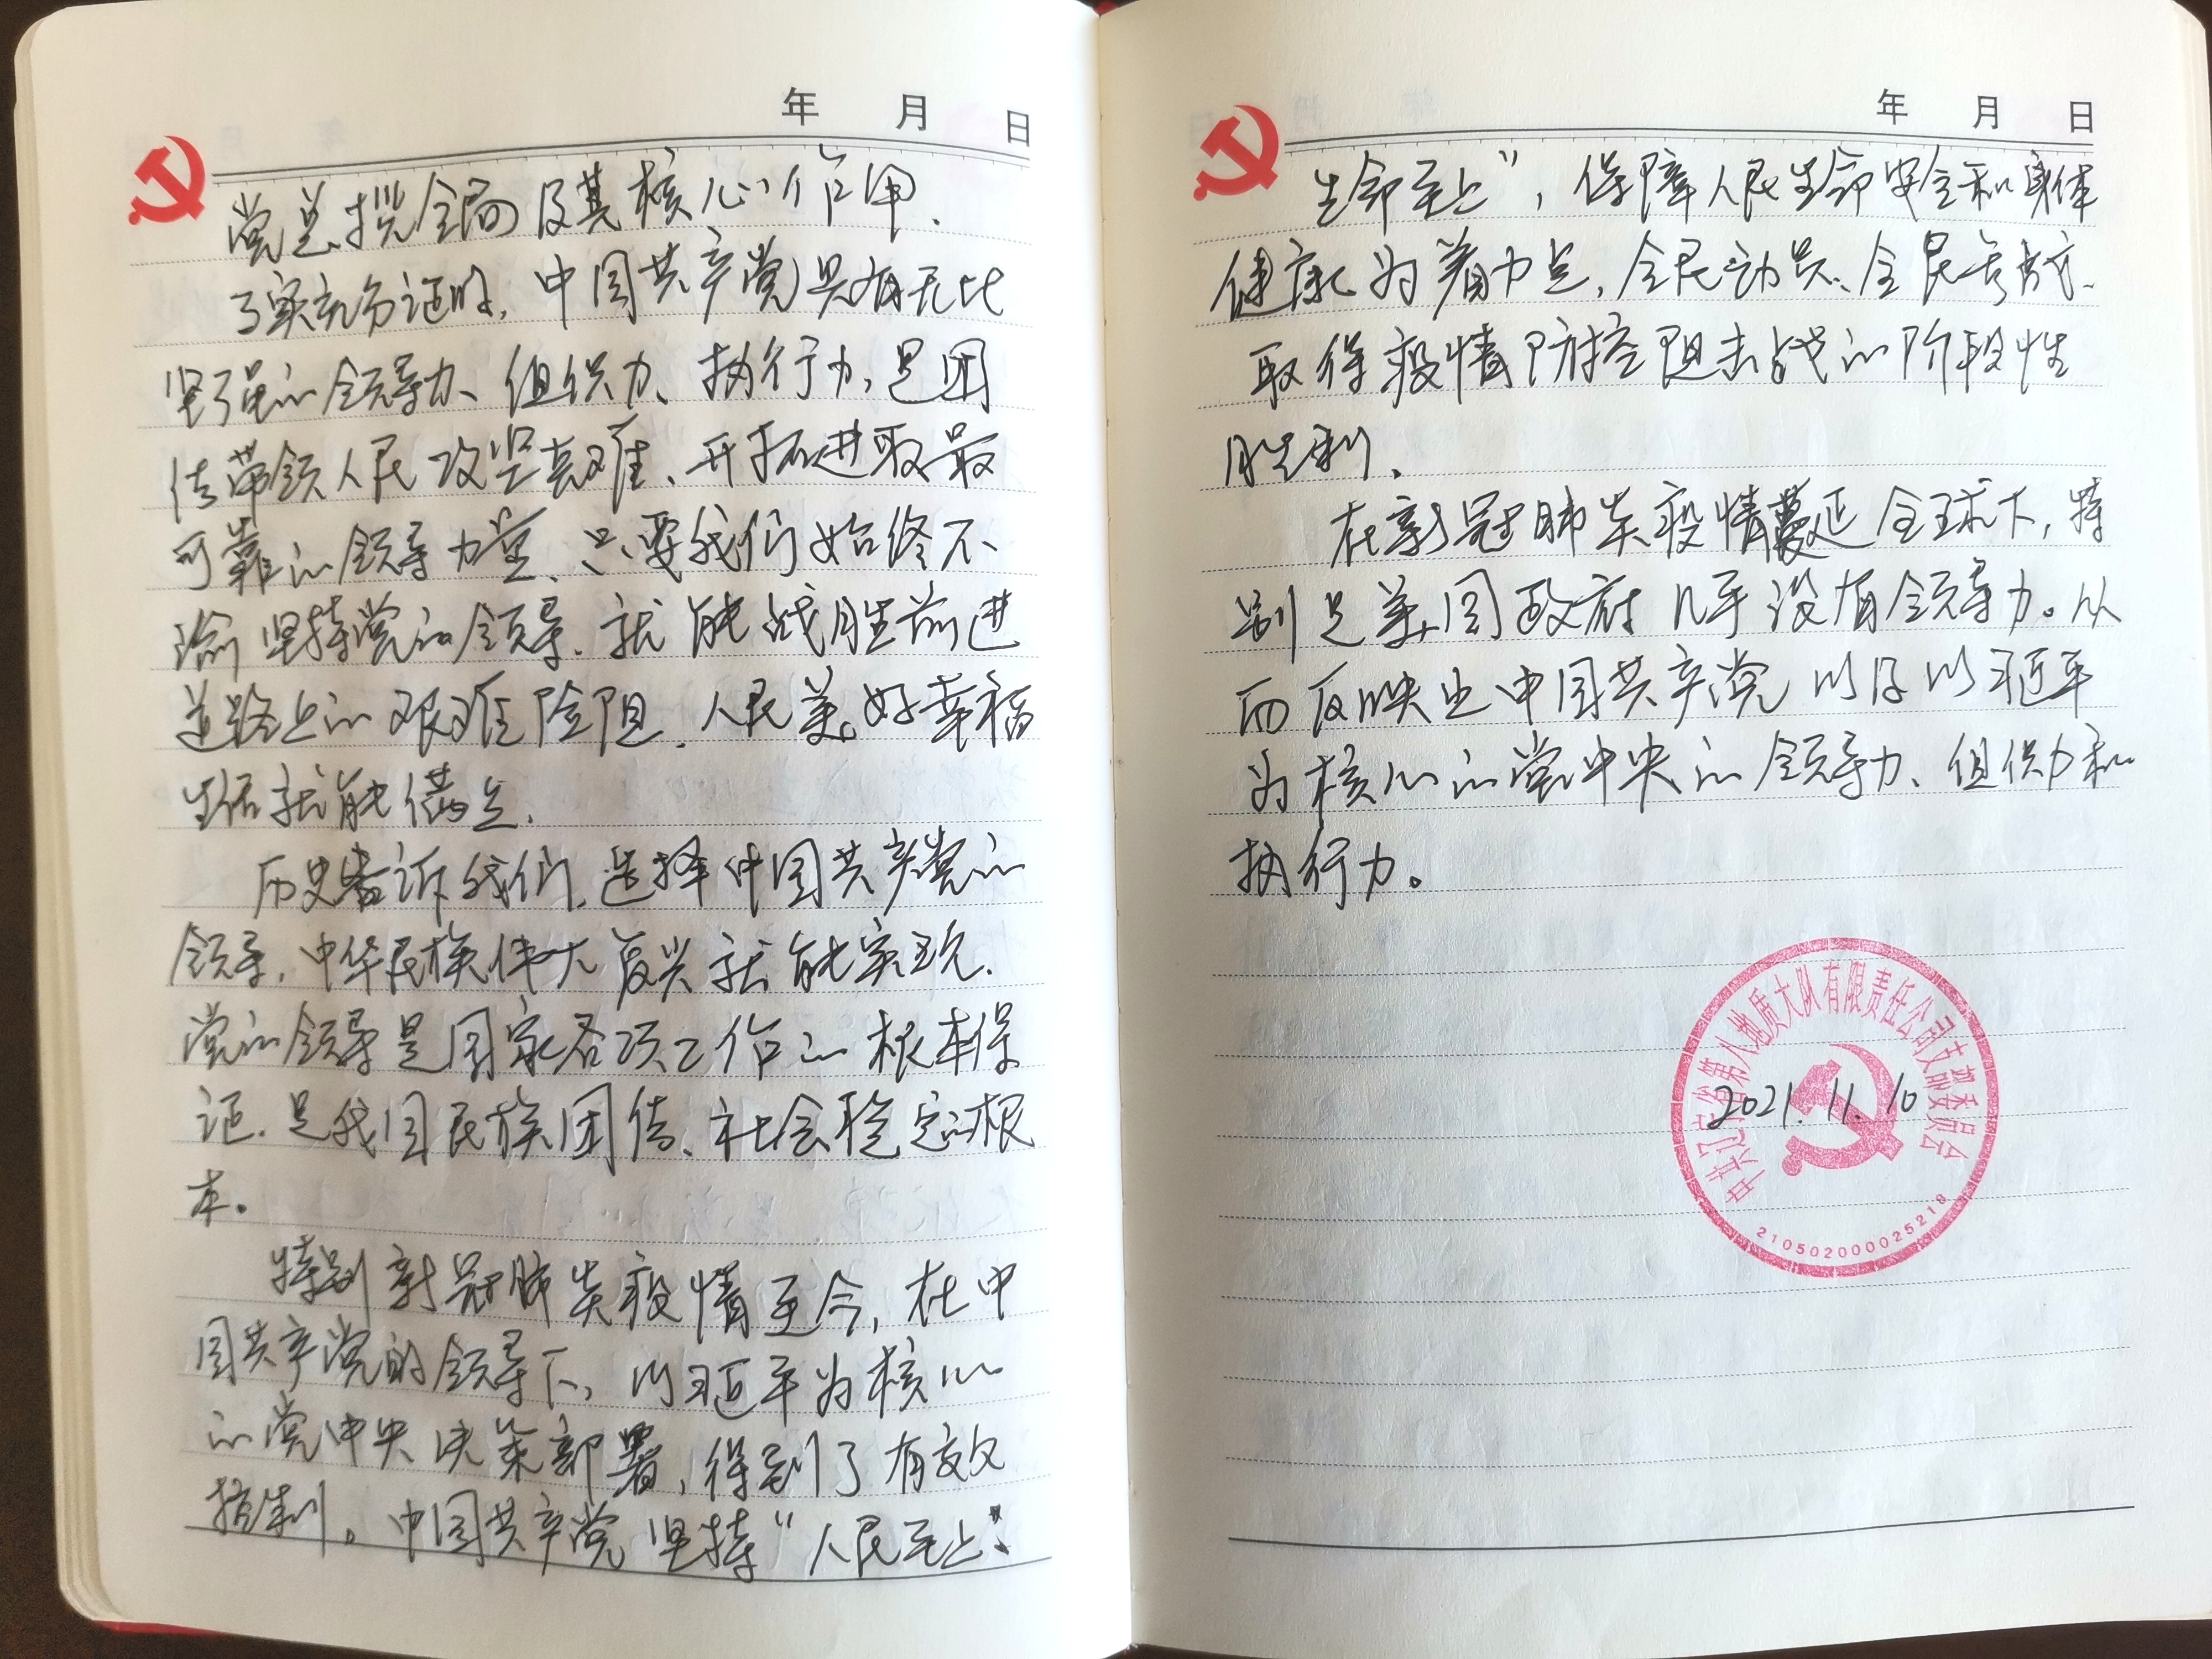 年 月 日
党总揽全局及其核心作用、
了实充分证明,中国共产党具有无比
坚强的领导力、组织力、执行力,是团
结带领人民攻坚克难、开拓进取最
可靠的领导力量、只要我们始终不
渝坚持党的领导、就能战胜前进
道路上的艰难险阻、人民美好幸福
生活就能满足、
历史告诉我们,选择中国共产党的
领导,中华民族伟大复兴就能实现、
党的领导是国家各项工作的根本保
证、是我国民族团结、社会稳定的根
本。
特别新冠肺炎疫情至今,在中
国共产党的领导下,以习近平为核心
的党中央决策部署,得到了有效
控制。中国共产党坚持“人民至上、
年 月 日
生命至上”,保障人民生命安全和身体
健康为着力点,全民动员、全民参战、
取得疫情防控阻击战的阶段性
胜利、
在新冠肺炎疫情蔓延全球下,特
别是美国政府几乎没有领导力。从
而反映出中国共产党以及以习近平
为核心的党中央的领导力、组织力和
执行力。
中共辽宁省第八地质大队有限责任公司支部委员会
2021.11.10
210502000025218